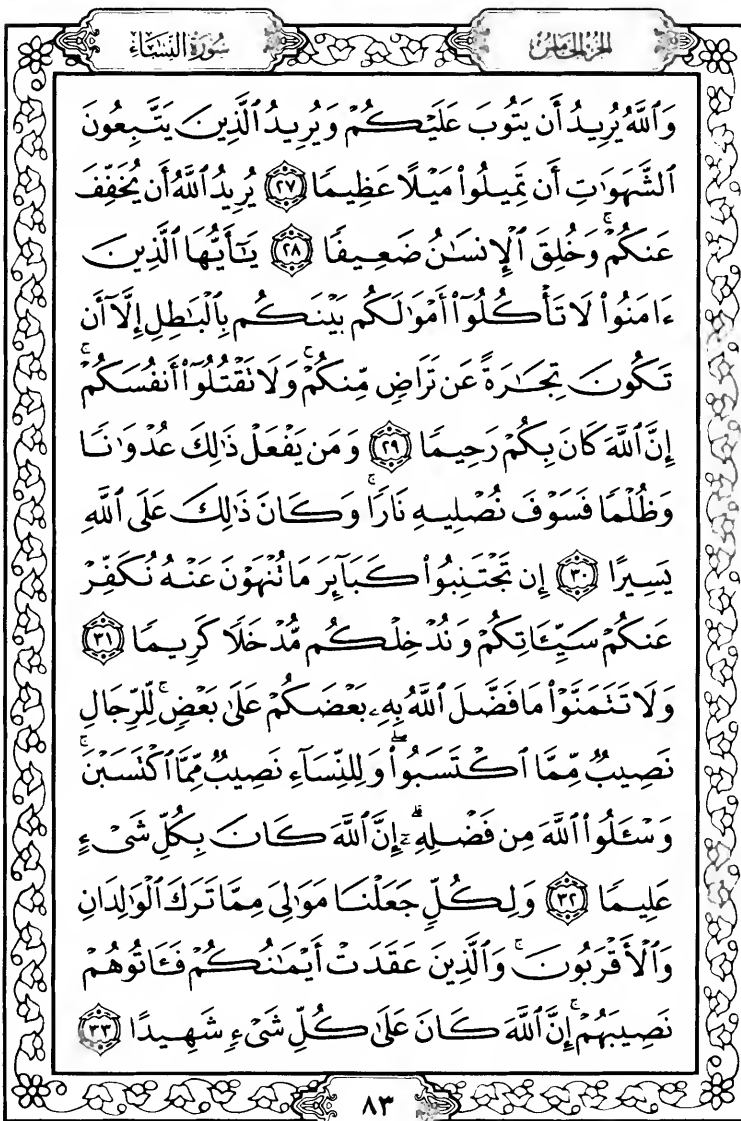 سُورَةُ النِّسَاءِ الجزء الخامس
وَٱللَّهُ يُرِيدُ أَن يَتُوبَ عَلَيْكُمْ وَيُرِيدُ ٱلَّذِينَ يَتَّبِعُونَ
ٱلشَّهَوَٰتِ أَن تَمِيلُوا۟ مَيْلًا عَظِيمًا ٢٧ يُرِيدُ ٱللَّهُ أَن يُخَفِّفَ
عَنكُمْ ۚ وَخُلِقَ ٱلْإِنسَـٰنُ ضَعِيفًا ٢٨ يَـٰٓأَيُّهَا ٱلَّذِينَ
ءَامَنُوا۟ لَا تَأْكُلُوٓا۟ أَمْوَٰلَكُم بَيْنَكُم بِٱلْبَـٰطِلِ إِلَّآ أَن
تَكُونَ تِجَـٰرَةً عَن تَرَاضٍ مِّنكُمْ ۚ وَلَا تَقْتُلُوٓا۟ أَنفُسَكُمْ ۚ
إِنَّ ٱللَّهَ كَانَ بِكُمْ رَحِيمًا ٢٩ وَمَن يَفْعَلْ ذَٰلِكَ عُدْوَٰنًا
وَظُلْمًا فَسَوْفَ نُصْلِيهِ نَارًا ۚ وَكَانَ ذَٰلِكَ عَلَى ٱللَّهِ
يَسِيرًا ٣٠ إِن تَجْتَنِبُوا۟ كَبَآئِرَ مَا تُنْهَوْنَ عَنْهُ نُكَفِّرْ
عَنكُمْ سَيِّـَٔاتِكُمْ وَنُدْخِلْكُم مُّدْخَلًا كَرِيمًا ٣١
وَلَا تَتَمَنَّوْا۟ مَا فَضَّلَ ٱللَّهُ بِهِۦ بَعْضَكُمْ عَلَىٰ بَعْضٍ ۚ لِّلرِّجَالِ
نَصِيبٌ مِّمَّا ٱكْتَسَبُوا۟ ۖ وَلِلنِّسَآءِ نَصِيبٌ مِّمَّا ٱكْتَسَبْنَ ۚ
وَسْـَٔلُوا۟ ٱللَّهَ مِن فَضْلِهِۦٓ ۗ إِنَّ ٱللَّهَ كَانَ بِكُلِّ شَىْءٍ
عَلِيمًا ٣٢ وَلِكُلٍّ جَعَلْنَا مَوَٰلِىَ مِمَّا تَرَكَ ٱلْوَٰلِدَانِ
وَٱلْأَقْرَبُونَ ۚ وَٱلَّذِينَ عَقَدَتْ أَيْمَـٰنُكُمْ فَـَٔاتُوهُمْ
نَصِيبَهُمْ ۚ إِنَّ ٱللَّهَ كَانَ عَلَىٰ كُلِّ شَىْءٍ شَهِيدًا ٣٣
٨٣